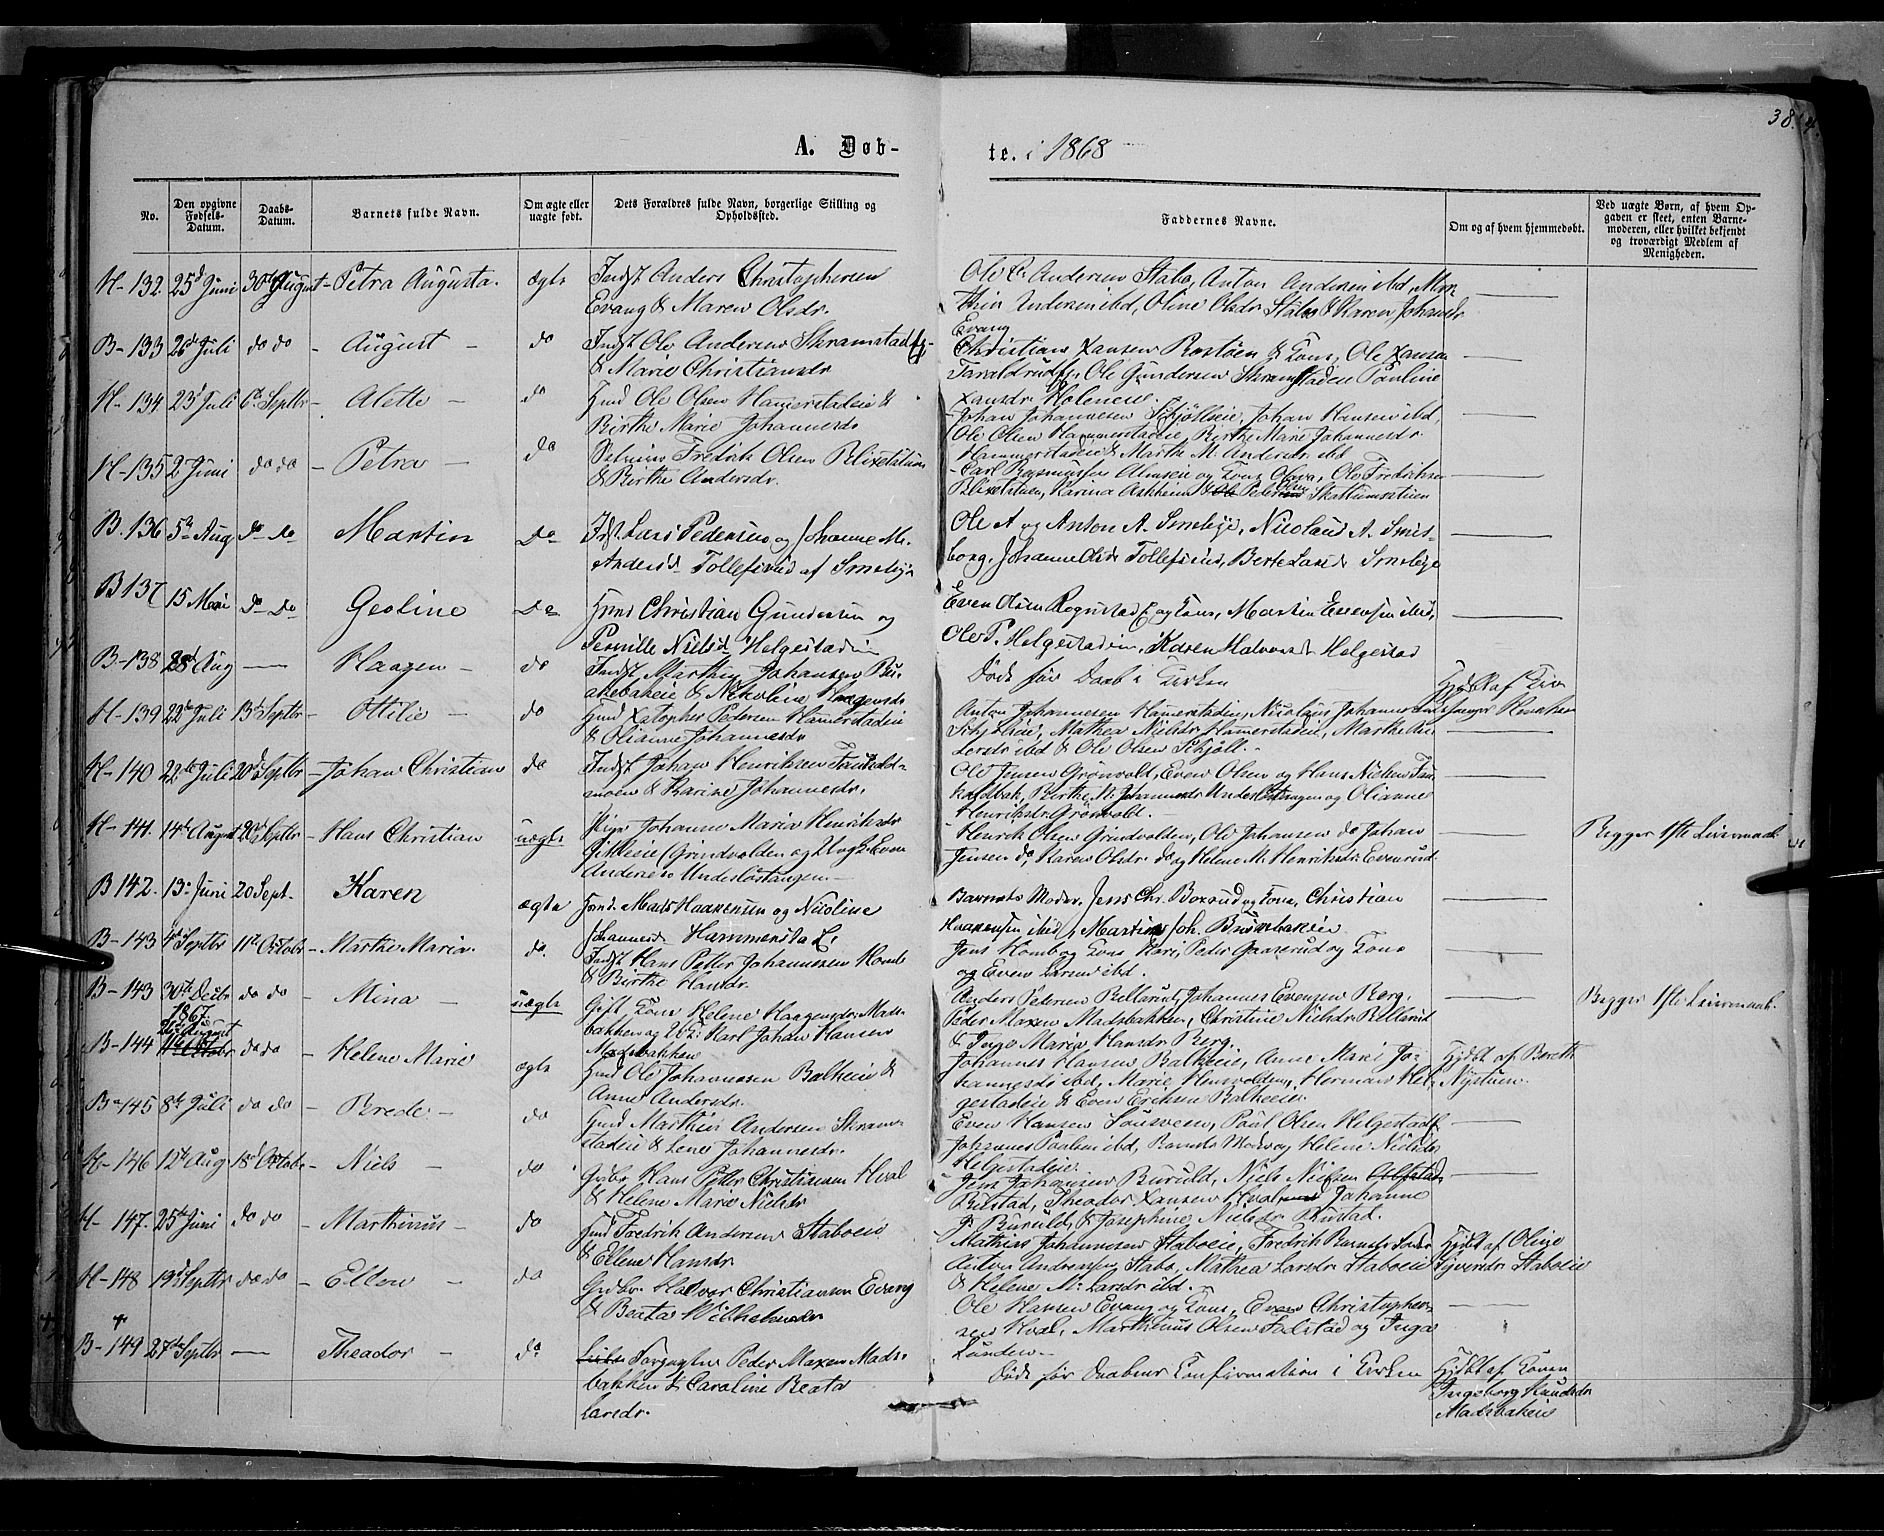 38.
A. Døb-
te. i 1868
No.
Den opgivne Fødsels-Datum.
Daabs-Datum.
Barnets fulde Navn.
Om ægte eller uægte født.
Dets Forældres fulde Navn, borgerlige Stilling og Opholdssted.
Faddernes Navne.
Om og af hvem hjemmedøbt.
Ved uægte Børn, af hvem Opgaven er skeet, enten Barnemoderen, eller hvilket bekjendt og troværdigt Medlem af Menigheden.
H-132. 25d Juni 30te August - Petra Augusta. ægte Indst Anders Christophersen
Evang & Maren Olsdr.
Ole C Andersen Stabo, Anton Andersen ibd, Mar-
thin Andersen ibd, Oline Olsdr Stabo & Karen Johansdr
Evang
B-133 26d Juli do do - August - do Indst Ole Andersen Skramstad
& Marie Christiansdr
Christian Hansen Rostøen & Kone, Ole Hansen
Taraldrud, Ole Gundersen Skramstadeie Pauline
Hansdr Holeneie.
H-134 23d Juli 6te Septbr - Alette - do Huus Ole Olsen Hamerstadeie &
Birthe Marie Johannesdr
Johan Johannesen Schjølleie, Johan Hansen ibd,
Ole Olsen Hammerstadeie, Berthe Marie Johannesdr
Hammerstadeie & Marthe M. Andersdr ibd
H-135 2 Juni do do - Petra - do Selveier Fredrik Olsen Blixetstuen
& Birthe Andersdr.
Carl Rasmussen Almseie og Kone Olava, Ole Fredriksen
Blixetstuen, Karina Askheim & Peder Olsen Skattumsstuen
B. 136 5te Aug do do Martin Do Indst Lars Pedersen og Johanne M.
Andersd Tollefsrud af Smeby
Ole A og Anton A. Smebye, Nicolaus A. Smes-
borg, Johanne Olsdr Tollefsrud, Berte Larsdr Smebye
B 137 15 Mai do Do Geoline Do Huus Christian Gundersen og
Pernille Nielsd Helgestadeie
Even Olsen Rognstad E og Kone, Martin Evensen ibid,
Ole P. Helgestadeie, Karen Halvorsdr Helgestad
B-138 28d Aug — Haagen - do Indst Marthin Johansen Bu-
akebakeie & Nikoline Haagensdr
Døde før Daab i Kirken
Hjdøbt af
H-139 22de Juli 13de Septbr Ottilie - do Huus Kstopher Pedersen Hamerstadeie
& Olianne Johannesdr
Anton Johannesen Hamerstadeie, Nicolaus Johannesen
Schjølleie, Mathea Nielsdr Hamerstadeie, Marthe An-
dersdr ibd & Ole Olsen Schjøll.-
H-140 22de Juli 20de Septbr - Johan Christian do Indst Johan Henriksen Fauchald-
moen & Karine Johannesdr.
Ole Jensen Grønvold, Even Olsen og Hans Nielsen Fau-
kaldbak, Birthe M. Johannesdr Under Østangen og Olianne
Henriksdr Grønvold.-
H-141. 14de August 20de Septbr - Hans Christian uægte Pige Johanne Maria Henriksdr
Gihleeie (Grindvolden og Ungk Even
Andersen Undeløstangen.-
Henrik Olsen Grindvolden, Ole Johansen do Johan
Jensen do, Karen Olsdr do og Helene M. Henriksdr Evenrud.
Begges 1ste Leiermaal.
B 142. 13de Juni 20 Sept. Karen ægte Huus. Mads Haakensen og Nicoline
Johannesd Hammersta E.
Barnets Moder, Jens Chr. Boxrud og Kone, Christian
Haakensen ibid, Martin Joh. Bruunbakeie
B-143 4de Septbr 11te Octobr - Marthe Maria. do. Indst Hans Petter Johannesen Homb
& Birthe Hansdr.
Jens Homb og Kone Kari, Peder Gaaserud og Kone
og Even Larsen ibd.
B-143 30te Decbr 1867 do do - Mina - uægte Gift Kone Helene Haagensdr Mads-
bakken og Karl Johan Hansen
Madsbakken
Anders Pedersen Bellerud, Johannes Evensen Berg,
Peder Maxen Madsbakken, Christine Nielsdr Bellerud
& Inge Marie Hansdr Berg.
Begges 1ste Leiermaal.
B-144 26de August do do - Helene Marie ægte Huus Ole Johannesen Balkeeie &
Anne Andersdr.
Johannes Hansen Balkeeie, Anne Marie Jo-
hannesdr ibd, Marie Hensvolden, Herman Hel-
gestadeie & Even Eriksen Balkeeie
Hjdøbt af Bereth
Nystuen.
B-145 8de Juli do do - Brede - do Huus Marthin Andersen Skram-
stadeie & Lene Johannesdr.
Even Hansen Sausveen, Paul Olsen Helgestadf
Johannes Paulsen ibd, Barnets Moder og Helene Nielsdr
Helgestadeie.
H-146 12de Aug 18de Octobr - Niels - do Grdbr Hans Petter Christiansen Hval
& Helene Marie Nielsdr
Jens Johannesen Buruld, Niels Nielsen
Bilstad, Theodor Hansen Hval Johanne
J. Buruld, & Josephine Nielsdr Bilstad.
H-147. 25de Juni do do - Marthinus - do Huus Fredrik Andersen Staboeie
& Ellene Hansdr
Mathias Johannesen Staboeie, Fredrik Barnets Fader
Anton Andersen Stabo, Mathea Larsdr Staboeie
& Helene M. Larsdr ibd.
Hjdøbt af Oline
Syversdr Staboeie
H-148 19de Septbr do do - Ellen - do Grdbr Halvor Christiansen Evang
& Beata Wilhelmsdr
Ole Hansen Evang og Kone, Even Christopher-
sen Hval, Marthinus Olsen Folstad og Inga
Lunden.-
B-149 27de Septbr — Theodor - do Peder Maxen Mads-
bakken & Caroline Beata
Larsdr.
Døde før Daabens Confirmation i Kirken
Hjdøbt af Konen
Ingeborg Knudsdr
Madsbakeie